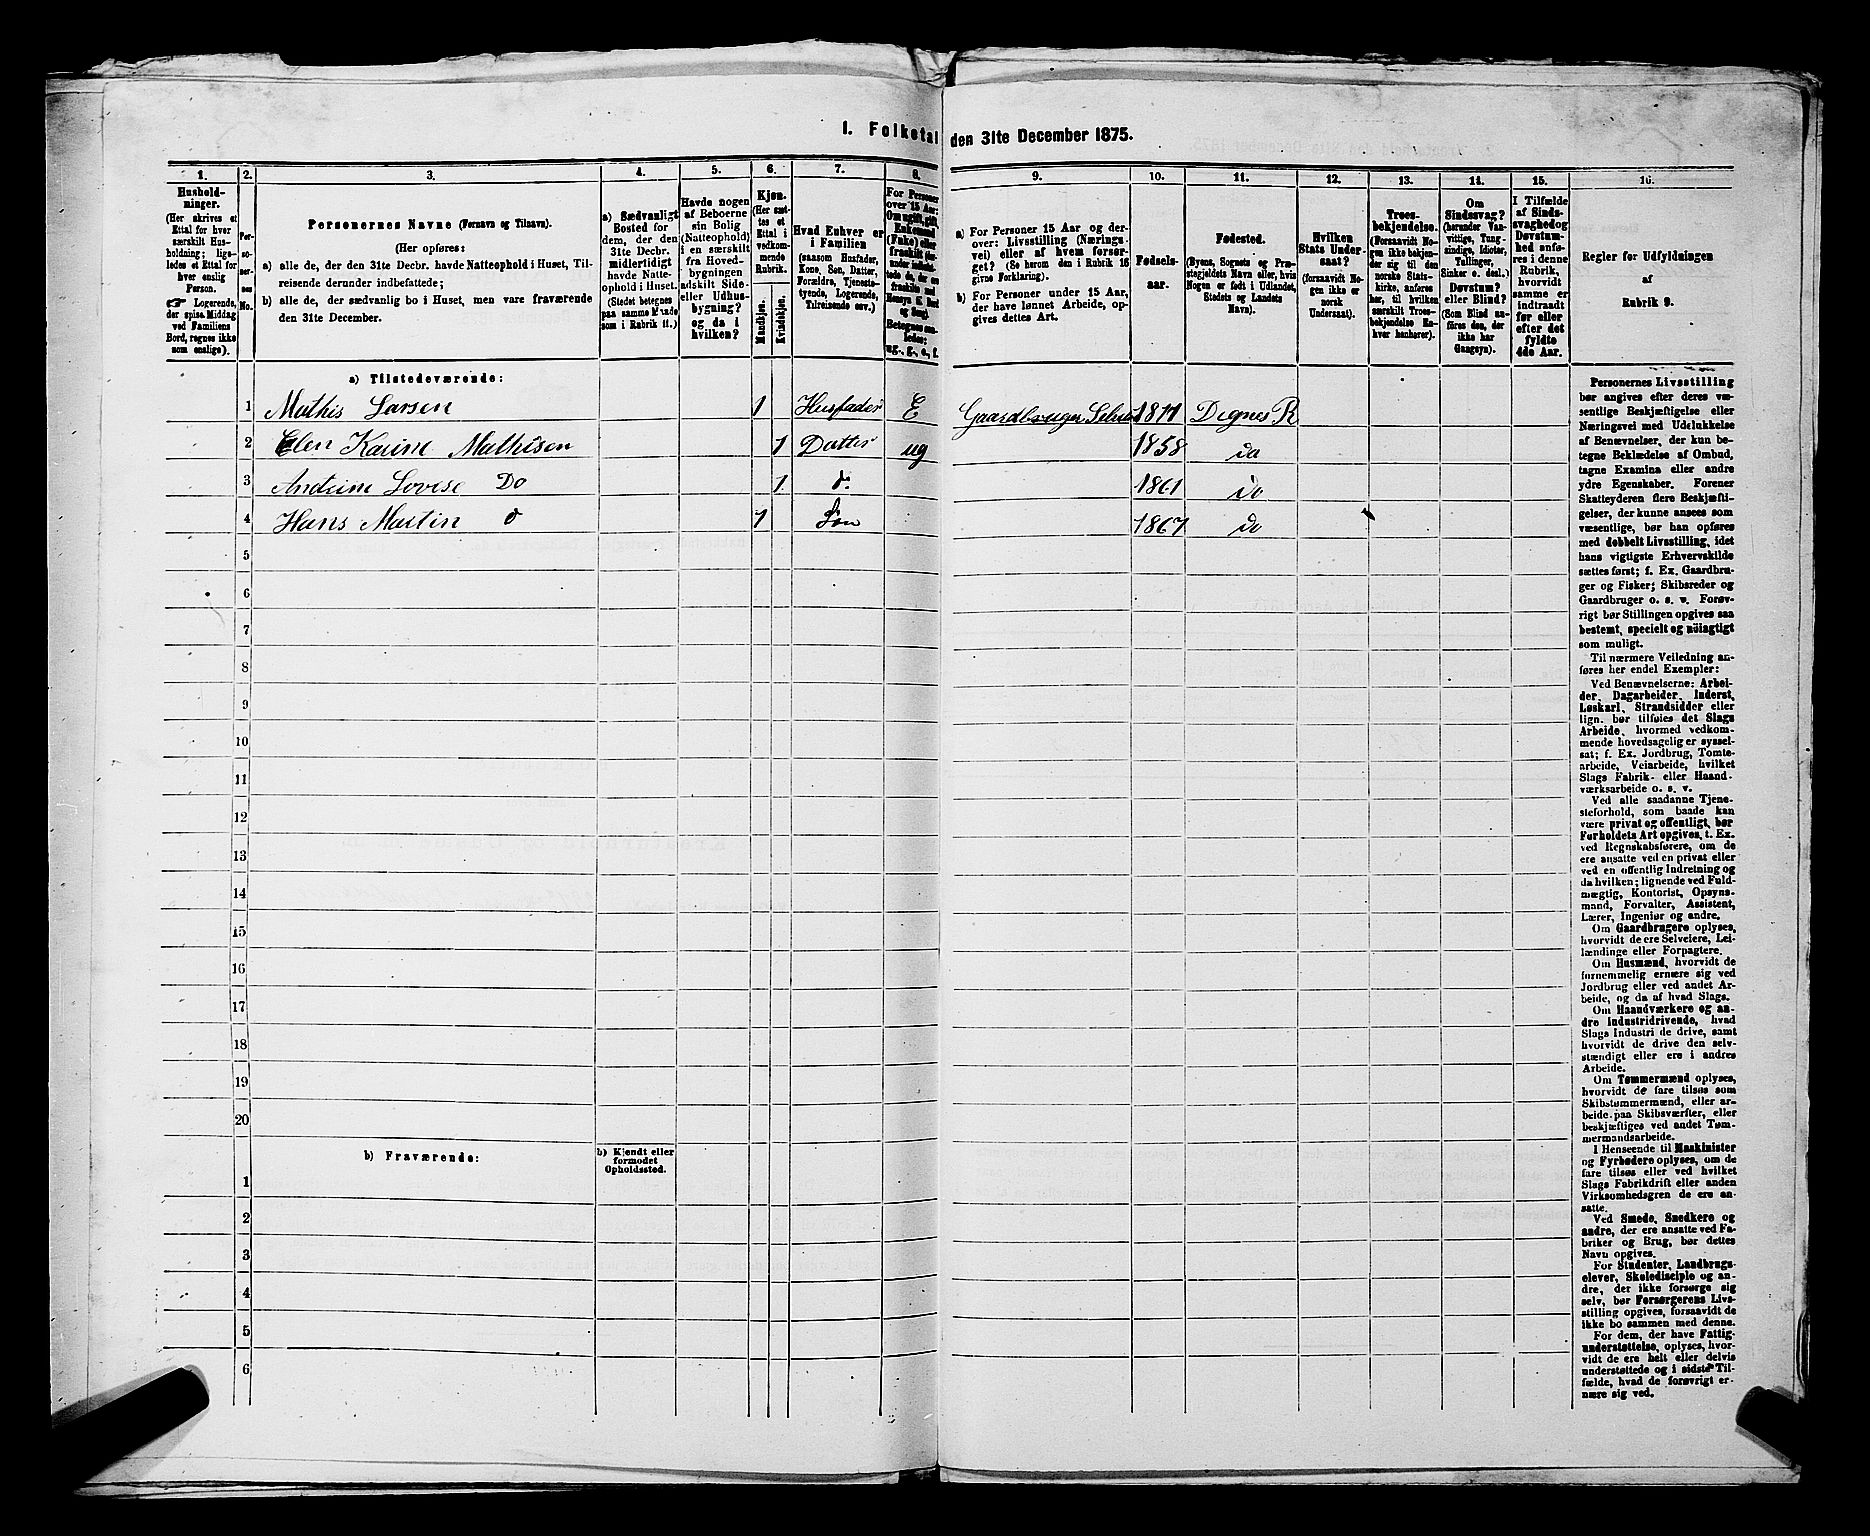 I. Folketal den 31te December 1875.
1.
Hushold-
ninger.
(Her skrives et
Ettal for hver
særskilt Hus-
holdning; lige-
ledes et Ettal for
hver enslig
Person.
☞ Logerende,
der spise Middag
ved Familiens
Bord, regnes ikke
som enslige).
2.
Per-
so-
ner-
nes
No.
3.
Personernes Navne (Fornavn og Tilnavn).
(Her opføres:
a) alle de, der den 31te Decbr. havde Natteophold i Huset, Til-
reisende derunder indbefattede;
b) alle de, der sædvanlig bo i Huset, men vare fraværende
den 31te December.
4.
a) Sædvanligt
Bosted for
dem, der den
31te Decbr.
midlertidigt
havde Natte-
ophold i Huset.
(Stedet betegnes
paa samme Maade
som i Rubrik 11.)
5.
Havde nogen
af Beboerne
sin Bolig
(Natteophold)
i en særskilt
fra Hoved-
bygningen
adskilt Side-
eller Udhus-
bygning?
og da i
hvilken?
6.
Kjøn.
(Her sæt-
tes et
Ettal i
vedkom-
mende
Rubrik.
Mandkjøn.
Kvindekjøn.
7.
Hvad Enhver er
i Familien
(saasom Husfader,
Kone, Søn, Datter,
Forældre, Tjeneste-
tyende, Logerende,
Tilreisende osv.)
8.
For Personer
over 15 Aar:
Om ugift, gift,
Enkemand
(Enke) eller
fraskilt
Betegnes saa-
ledes:
ug., g., e., f.
9.
a) For Personer 15 Aar og der-
over: Livsstilling (Nærings-
vei) eller af hvem forsør-
get? (Se herom den i Rubrik 16
givne Forklaring).
b) For Personer under 15 Aar,
der have lønnet Arbeide, op-
gives dettes Art.
10.
Fødsels-
aar.
11.
Fødested.
(Byens, Sognets og Præ-
stegjeldets Navn eller, hvis
Nogen er født i Udlandet,
Stedets og Landets
Navn).
12.
Hvilken
Stats Under-
saat?
(forsaavidt No-
gen ikke er
norsk
Undersaat).
13.
Troes-
bekjendelse.
(Forsaavidt No-
gen ikke bekjen-
der sig til den
norske Stats-
kirke, anføres
her, til hvilken
særskilt Troes-
bekjendelse En-
hver henhører).
14.
Om
Sindssvag?
(herunder Van-
vittige, Tung-
sindige, Idioter,
Tullinger,
Sinker o. desl.)
Døvstum?
eller Blind?
(Som Blind an-
føres den, der
ikke har
Gangsyn).
15.
I Tilfælde
af Sinds-
svaghed og
Døvstum-
hed anfø-
res i denne
Rubrik,
hvorvidt
samme er
indtraadt
før eller
efter det
fyldte
4de Aar.
16.
Regler for Udfyldningen
af
Rubrik 9.
a) Tilstedeværende:
1 Mathis Larsen 1 Husfader E Gaardbruger 1811 Degnes R
2 Elen Karine Mathisen 1 Datter ug 1858 do
3 Andrine Lovise Do 1 d. 1861 do
4 Hans Martin d 1 Søn 1867 do
5
6
7
8
9
10
11
12
13
14
15
16
17
18
19
20
b) Fraværende:
b) Kjendt eller
formodet
Opholdssted.
1
2
3
4
5
6
Personernes Livsstilling
bør angives efter deres væ-
sentlige Beskjæftigelse eller
Næringsvei med Udelukkelse
af Benævnelser, der kun be-
tegne Beklædelse af Ombud,
tagne Examina eller andre
ydre Egenskaber. Forener
Skatteyderen flere Beskjæfti-
gelser, der kunne ansees som
væsentlige, bør han opføres
med dobbelt Livsstilling, idet
hans vigtigste Erhvervskilde
sættes først; f. Ex. Gaardbru-
ger og Fisker; Skibsreder og
Gaardbruger o. s. v. Forøv-
rigt bør Stillingen opgives saa
bestemt, specielt og nöiagtigt
som muligt.
Til nærmere Veiledning an-
føres her endel Exempler:
Ved Benævnelserne: Arbei-
der, Dagarbeider, Inderst,
Løskarl, Strandsidder eller
lign. bør tilføies det Slags
Arbeide, hvormed vedkom-
mende hovedsagelig er syssel-
sat; f. Ex. Jordbrug, Tomte-
arbeide, Veiarbeide, hvilket
Slags Fabrik- eller Haand-
værksarbeide o. s. v.
Ved alle saadanne Tjene-
steforhold, som baade kan
være privat og offentligt, bør
Forholdets Art opgives, t. Ex.
ved Regnskabsførere, om de
ere ansatte ved en privat eller
ved en offentlig Indretning og
da hvilken; lignende ved Fuld-
mægtig, Kontorist, Opsyns-
mand, Forvalter, Assistent,
Lærer, Ingeniør og andre.
Om Gaardbrugere oplyses,
hvorvidt de ere Selveiere, Lei-
lændinge eller Forpagtere.
Om Husmænd, hvorvidt de
fornemmelig ernære sig ved
Jordbrug eller ved andet Ar-
beide, og da af hvad Slags.
Om Haandværkere og an-
dre industridrivende, hvad
Slags Industri de drive, samt
hvorvidt de drive den selv-
stændigt eller ere i andres
Arbeide.
Om Tømmermænd oplyses,
hvorvidt de fare tilsøs som
Skibstømmermænd, eller ar-
beide paa Skibsværfter, eller
beskjæftiges ved andet Tøm-
mermandsarbeide.
I Henseende til Maskinister
og Fyrbødere oplyses, om de
fare tilsøs eller ved hvilket
Slags Fabrikdrift eller anden
Virksomhedsgren de ere an-
satte.
Ved Smede, Snedkere og
andre, der ere ansatte ved Fa-
briker og Brug, bør dettes
Navn opgives.
For Studenter, Landbrugs-
elever, Skoledisciple og an-
dre, der ikke forsørge sig
selv, bør Forsørgerens Livs-
stilling opgives, forsaavidt de
ikke bo sammen med denne.
For dem, der have Fattig-
understøttelse, oplyses, hvor-
vidt de ere helt eller delvis
understøttede og i sidste Til-
fælde, hvad de forøvrigt er-
nære sig ved.